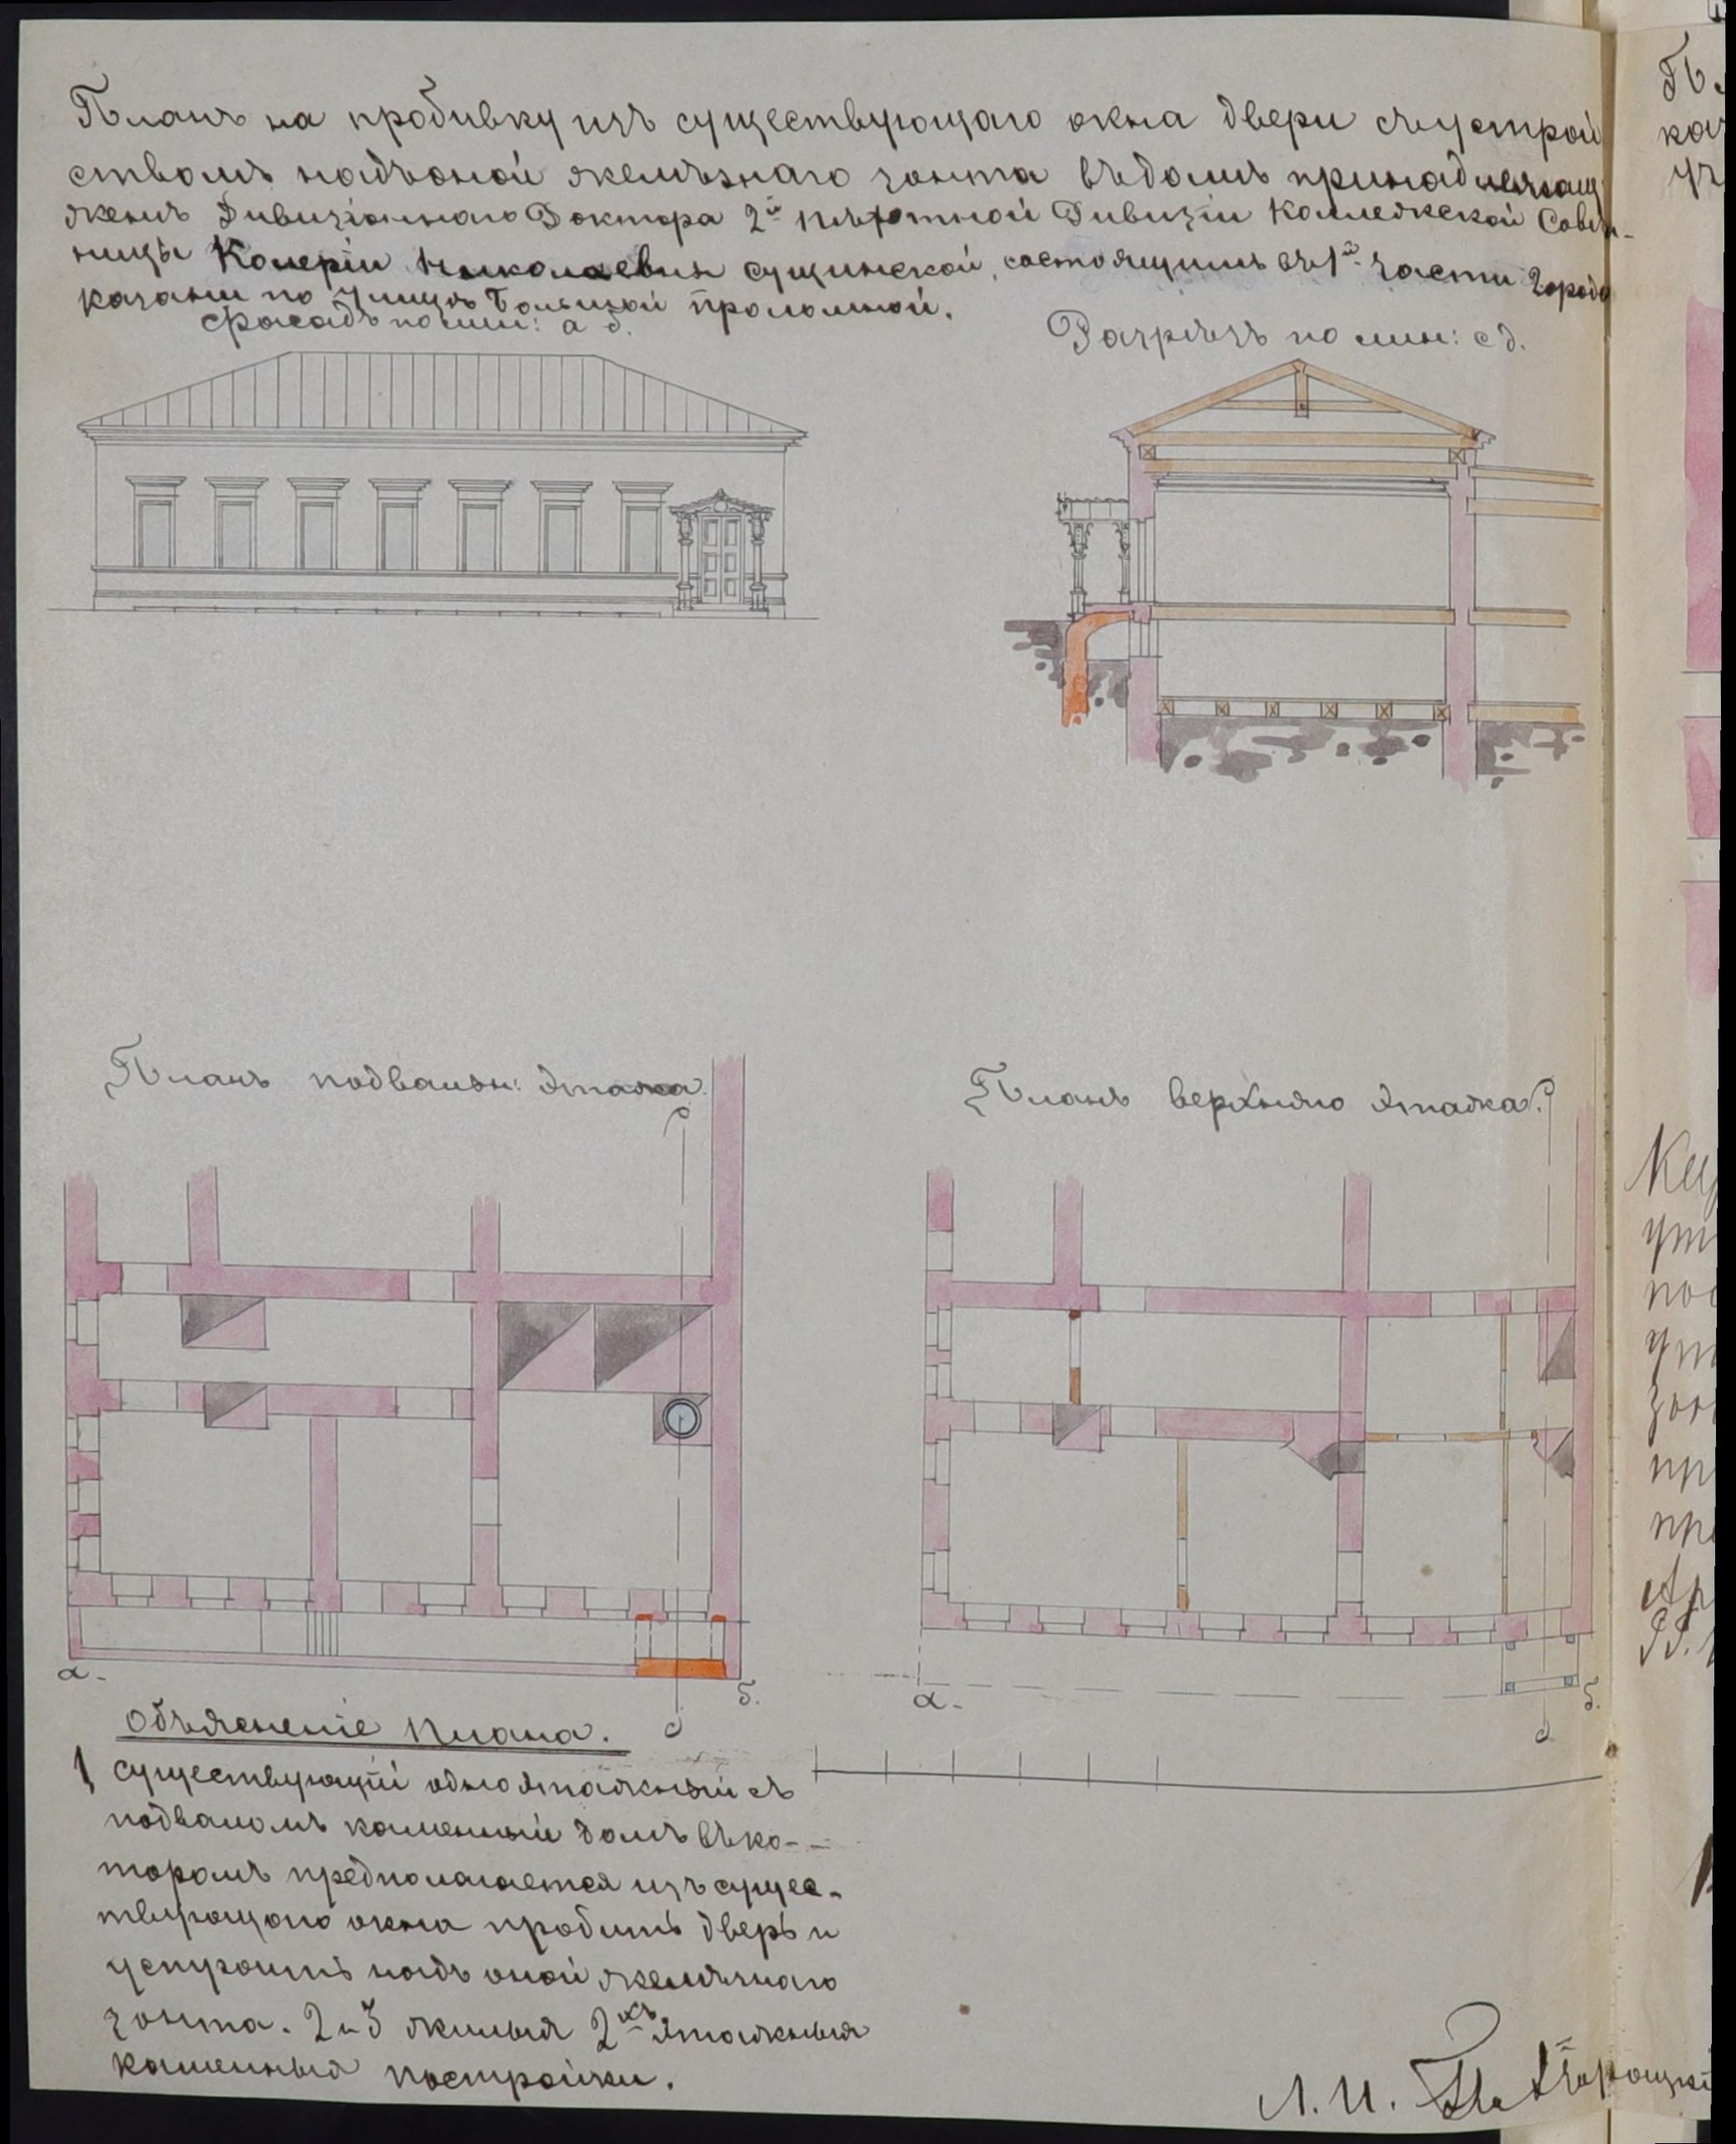 Планъ на пробивку изъ существующаго окна двери съ устрой
ствомъ надъ оной желѣзнаго зонта въ домѣ принадлежащ
женѣ Дивизіоннаго Доктора 2й пѣхотной Дивизіи Коллежской Совѣт-
ницы Николаевны Сущинской, состоящимъ въ 1й части города
Казани по улицѣ Большой проломной.
Фасадъ по лин: а б.
Разрѣзъ по лин: с д.
Планъ подвальн: этажа.
Планъ верхняго этажа.
с
с
а.
б.
д
а.
б.
д
Объясненіе плана.
1 существующій одноэтажный съ
подваломъ каменный домъ въ ко-
торомъ предполагается изъ сущес-
твующаго окна пробить дверь и
устроить надъ оной желѣзнаго
зонта. 2 и 3 жилыя 2хъ этажныя
каменныя постройки.
Л. И.